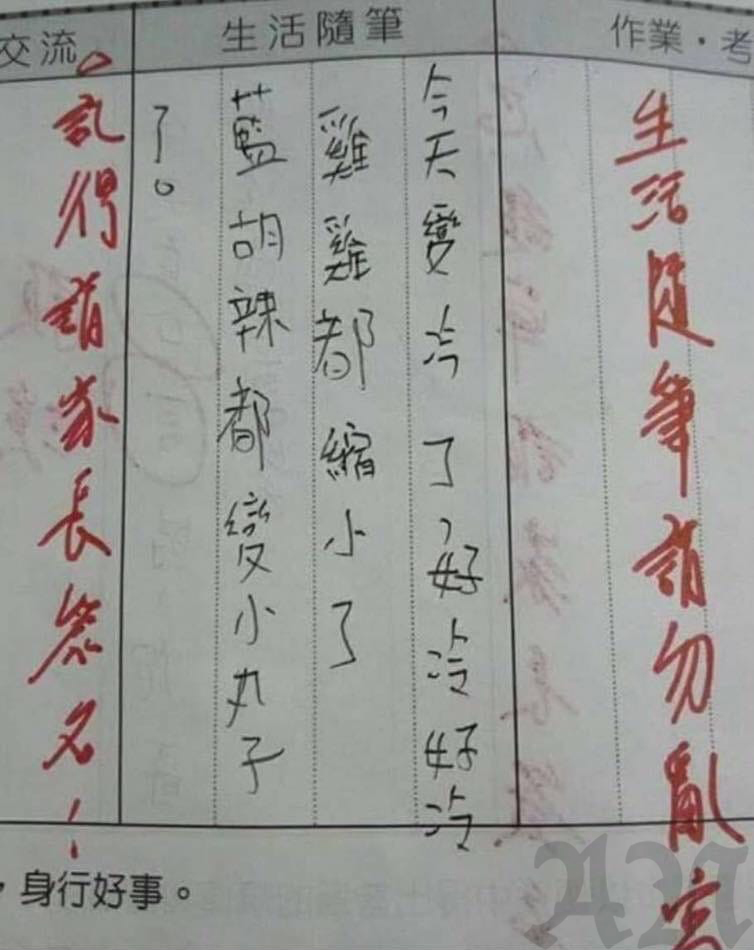 作業・考
生活隨筆請勿亂寫
生活隨筆
今天變冷了,好冷好冷
雞雞都縮小了
藍胡辣都變小丸子
了。
交流
。記得請家長簽名!
,身行好事。